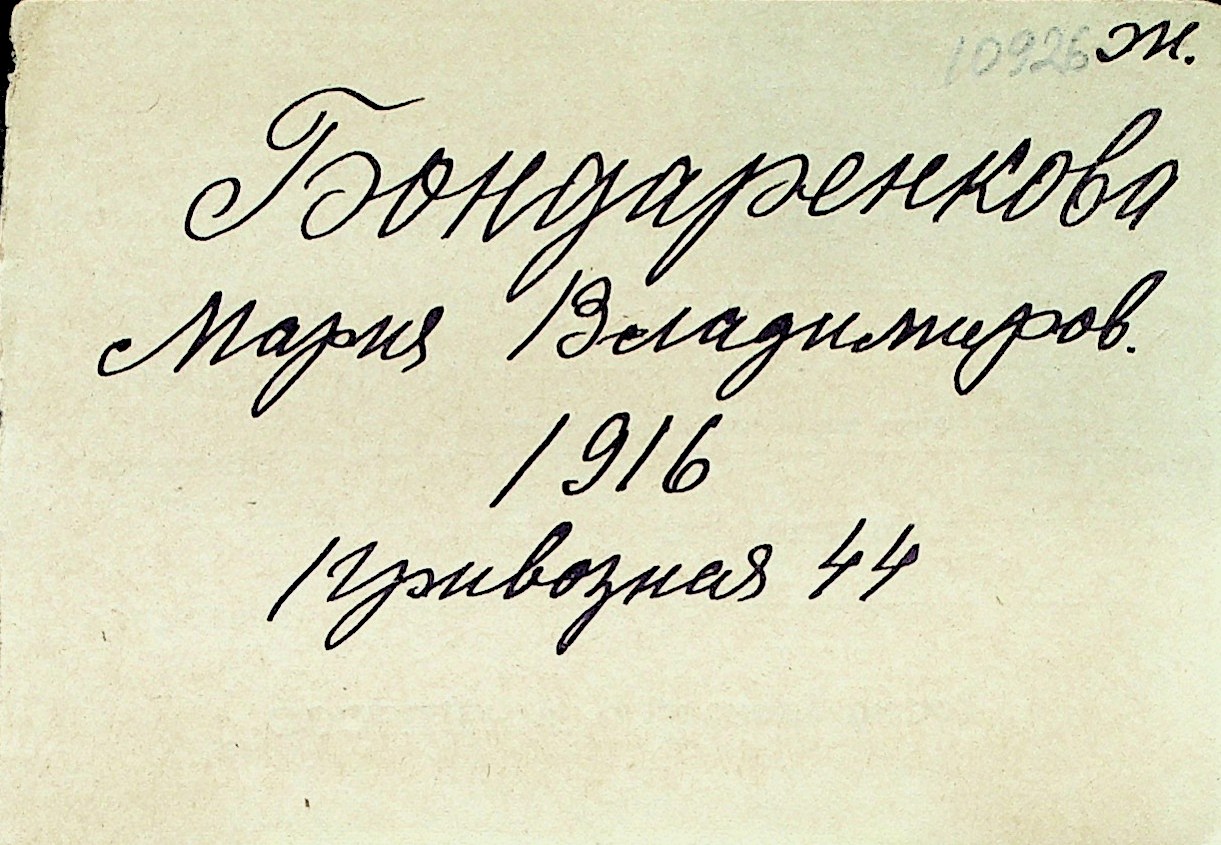 10926 ж.
Бондаренкова
Мария Владимиров.
1916
Привозная 44